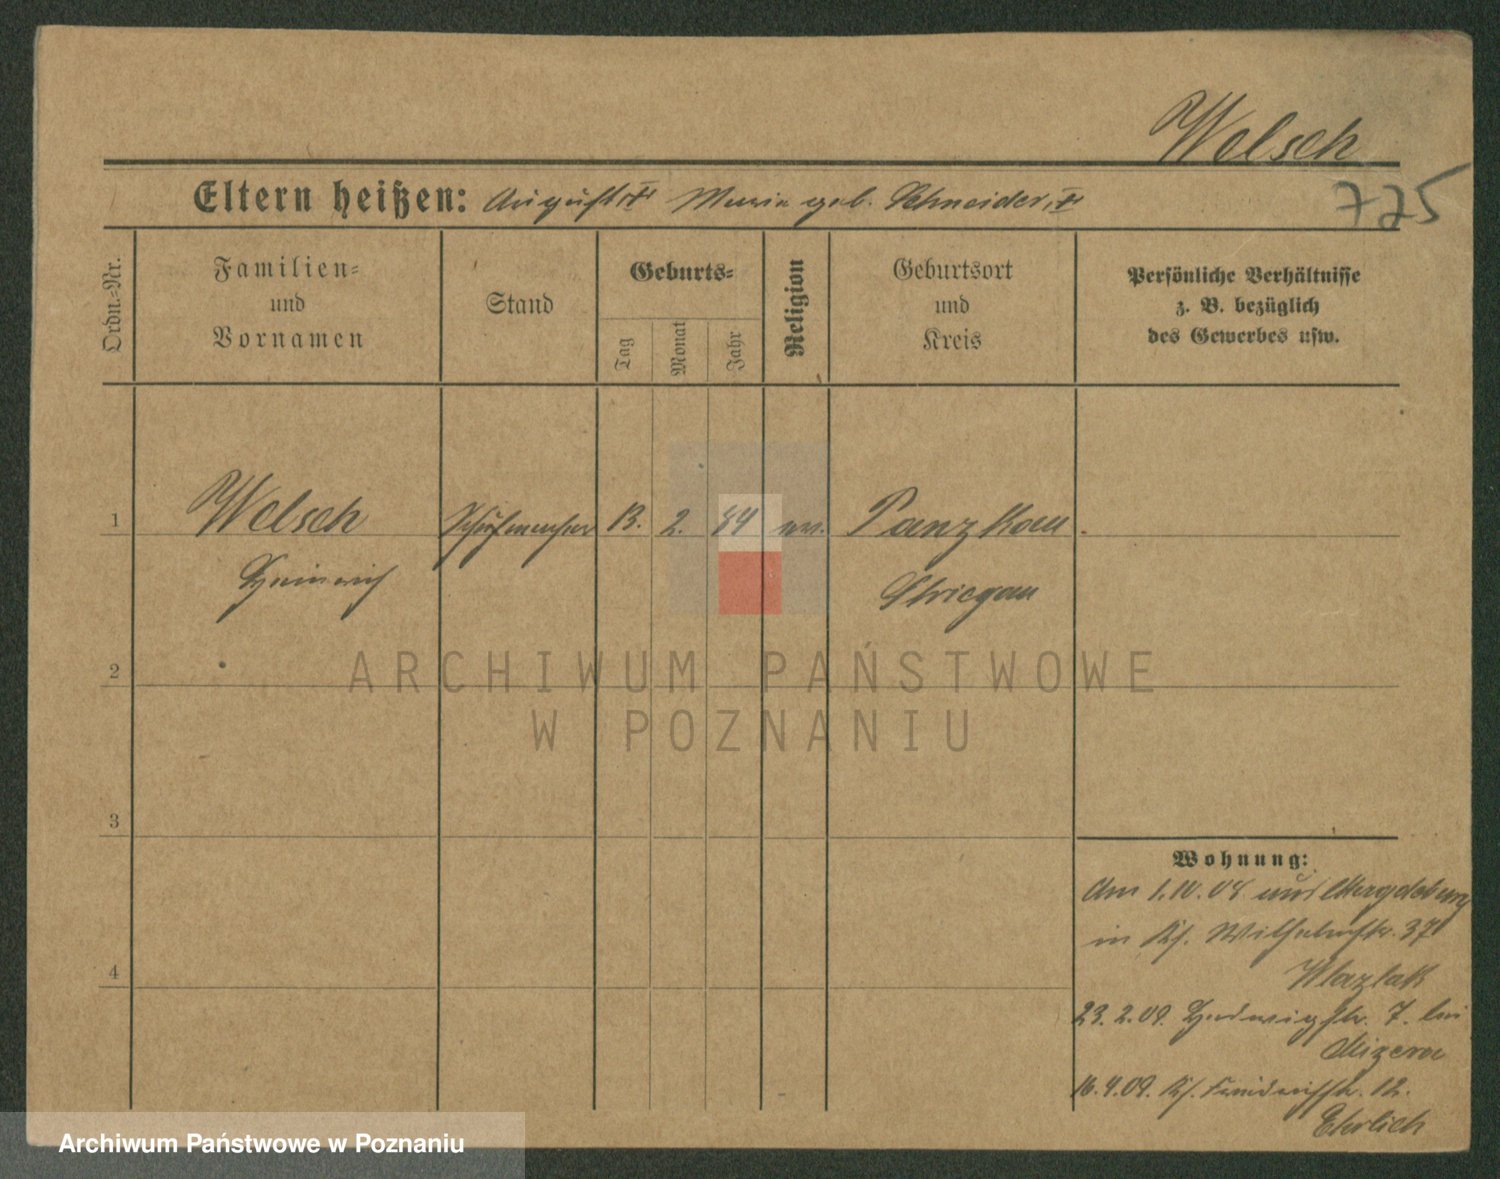 Welsch
Eltern heißen: August † Maria geb. Schneider, †
775
Ordn.-Nr.
Familien-
und
Vornamen
Stand
Geburts-
Tag
Monat
Jahr
Religion
Geburtsort
und
Kreis
Persönliche Verhältnisse
z. B. bezüglich
des Gewerbes usw.
1
Welsch
Schutzmann
13. 2. 84 ev.
Panzkau
Heinrich
Striegau
2
3
4
Wohnung:
Am 1.10.08 aus Magdeburg
in Wilhelmstr. 37
Wlazlak
23.2.09. Hedwigstr. 7. bei
Mizera
16.4.09. Friedrichstr. 12.
Ehrlich
ARCHIWUM PAŃSTWOWE
W POZNANIU
Archiwum Państwowe w Poznaniu